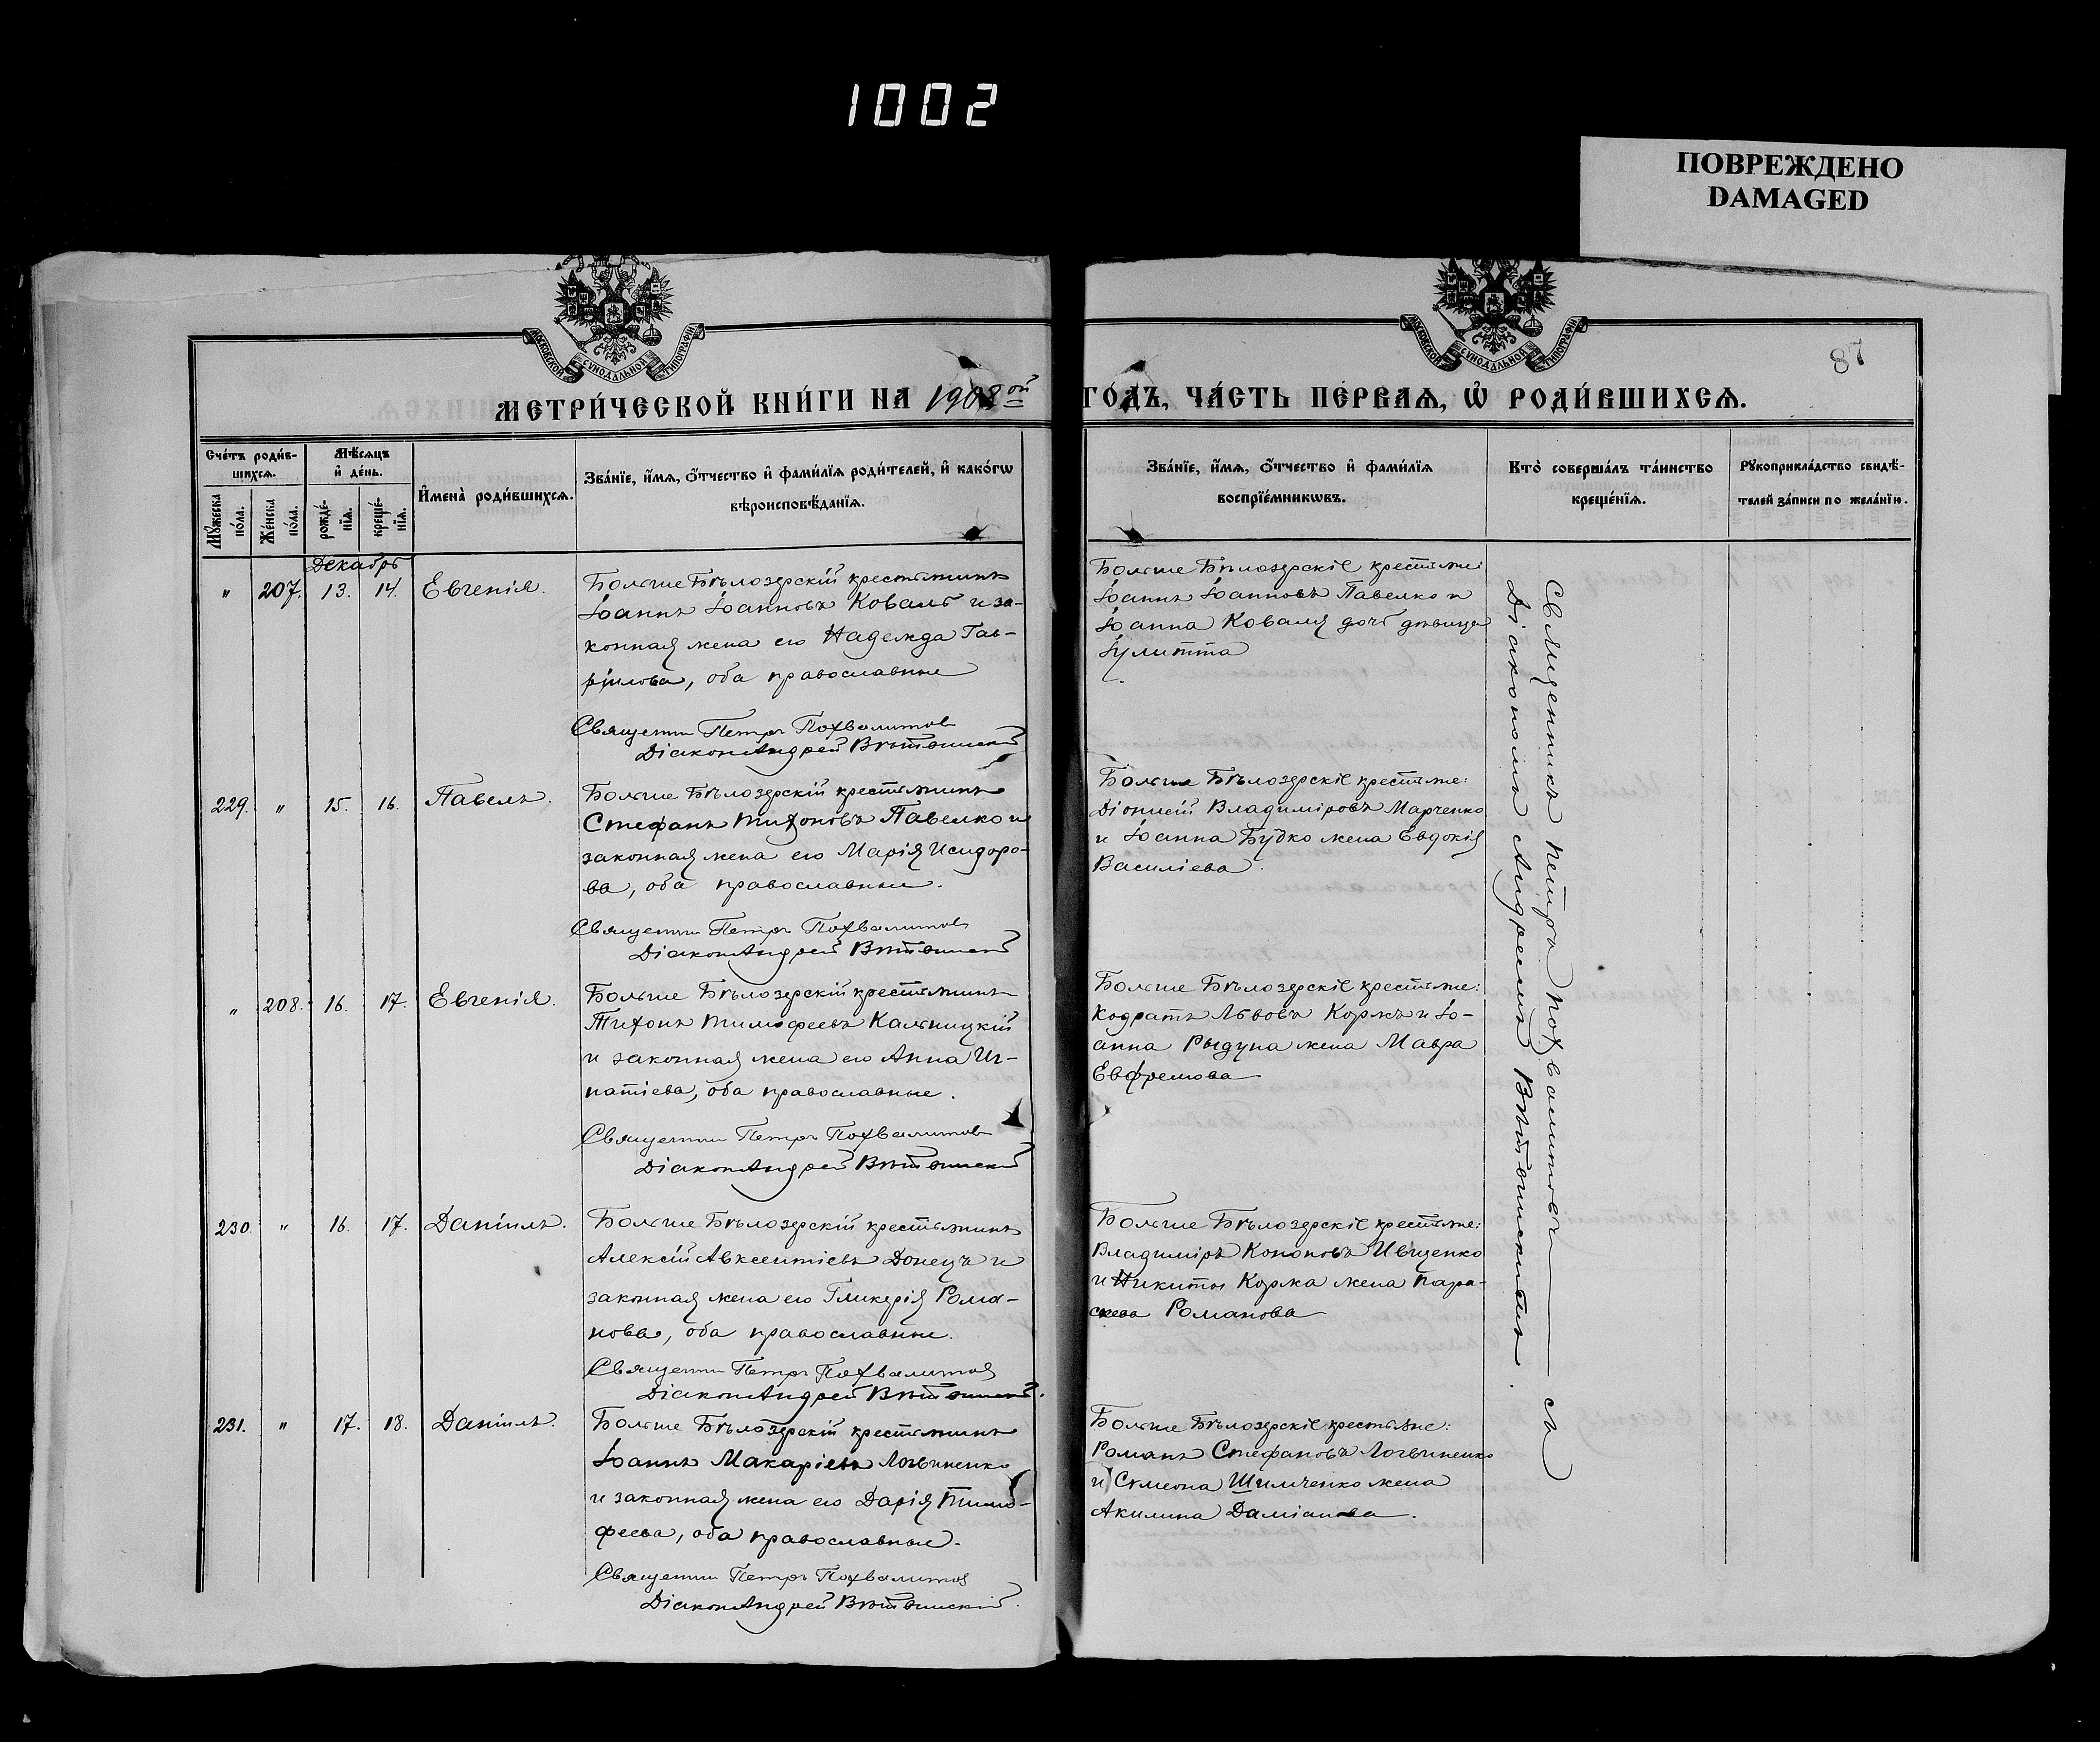 1002
ПОВРЕЖДЕНО
DAMAGED
МОСКОВСКОЙ СУНОДАЛЬНОЙ ТИПОГРАФІИ
МОСКОВСКОЙ СУНОДАЛЬНОЙ ТИПОГРАФІИ
87
МЕТРИ́ЧЕСКОЙ КНИ́ГИ НА 1908 ой ГО́ДЪ, ЧА́СТЬ ПЕ́РВАѦ, Ѡ҆ РОДИ́ВШИХСѦ.
Сче́тъ роди́в-
шихсѧ.
Мꙋ́жеска
по́ла.
Же́нска
по́ла.
Мѣ́сѧцъ
и҆ де́нь.
рожде́-
нїѧ.
креще́-
нїѧ.
И҆мена̀ роди́вшихсѧ.
Зва́нїе, и҆́мѧ, ѻ҆́тчество и҆ фами́лїѧ роди́телей, и҆ како́гѡ
вѣроисповѣ́данїѧ.
Зва́нїе, и҆́мѧ, ѻ҆́тчество и҆ фами́лїѧ
воспрїе́мникѡвъ.
Кто̀ соверша́лъ та́инство
креще́нїѧ.
Рꙋкоприкла́дство свидѣ́-
телей за́писи по жела́нїю.
Декабрь
" 207. 13. 14. Евгенія.
Больше Бѣлозерскій крестьянинъ
Іоаннъ Іоанновъ Коваль и за-
конная жена его Надежда Гав-
ріилова, оба православные
Священник Петръ Похвалитов
Діаконъ Андрей Вѣтвинский
Больше Бѣлозерскіе крестьяне:
Іоаннъ Іоанновъ Павелко и
Іоанна Коваля дочь дѣвица
Іулитта
229. " 15. 16. Павелъ.
Больше Бѣлозерскій крестьянинъ
Стефанъ Тихоновъ Павелко и
законная жена его Марія Исидоро-
ва, оба православные.
Священник Петръ Похвалитов
Діаконъ Андрей Вѣтвинский
Больше Бѣлозерскіе крестьяне:
Діонисій Владиміровъ Марченко
и Іоанна Будко жена Евдокія
Василіева.
" 208. 16. 17. Евгенія.
Больше Бѣлозерскій крестьянинъ
Тихонъ Тимофеевъ Кальницкій
и законная жена его Анна Иг-
натіева, оба православные.
Священник Петръ Похвалитов
Діаконъ Андрей Вѣтвинский
Больше Бѣлозерскіе крестьяне:
Кодратъ Львовъ Коржъ и Іо-
анна Рыдуна жена Мавра
Евфремова
230. " 16. 17. Даніилъ.
Больше Бѣлозерскій крестьянинъ
Алексій Авксентіевъ Донецъ и
законная жена его Гликерія Рома-
нова, оба православные.
Священник Петръ Похвалитов
Діаконъ Андрей Вѣтвинский.
Больше Бѣлозерскіе крестьяне:
Владиміръ Кононовъ Ивщенко
и Никиты Коржа жена Пара-
скева Романова
231. " 17. 18. Даніилъ.
Больше Бѣлозерскій крестьянинъ
Іоаннъ Макаріевъ Логвиненко
и законная жена его Дарія Тимо-
феева, оба православные.
Священник Петръ Похвалитов
Діаконъ Андрей Вѣтвинскій.
Больше Бѣлозерскіе крестьяне:
Романъ Стефановъ Логвиненко
и Сѵмеона Шимченко жена
Акилина Даміанова.
Священникъ Петръ Похвалитовъ съ
Діакономъ Андреемъ Вѣтвинскимъ.